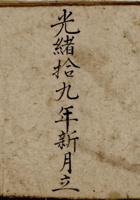 光緒拾九年新月立